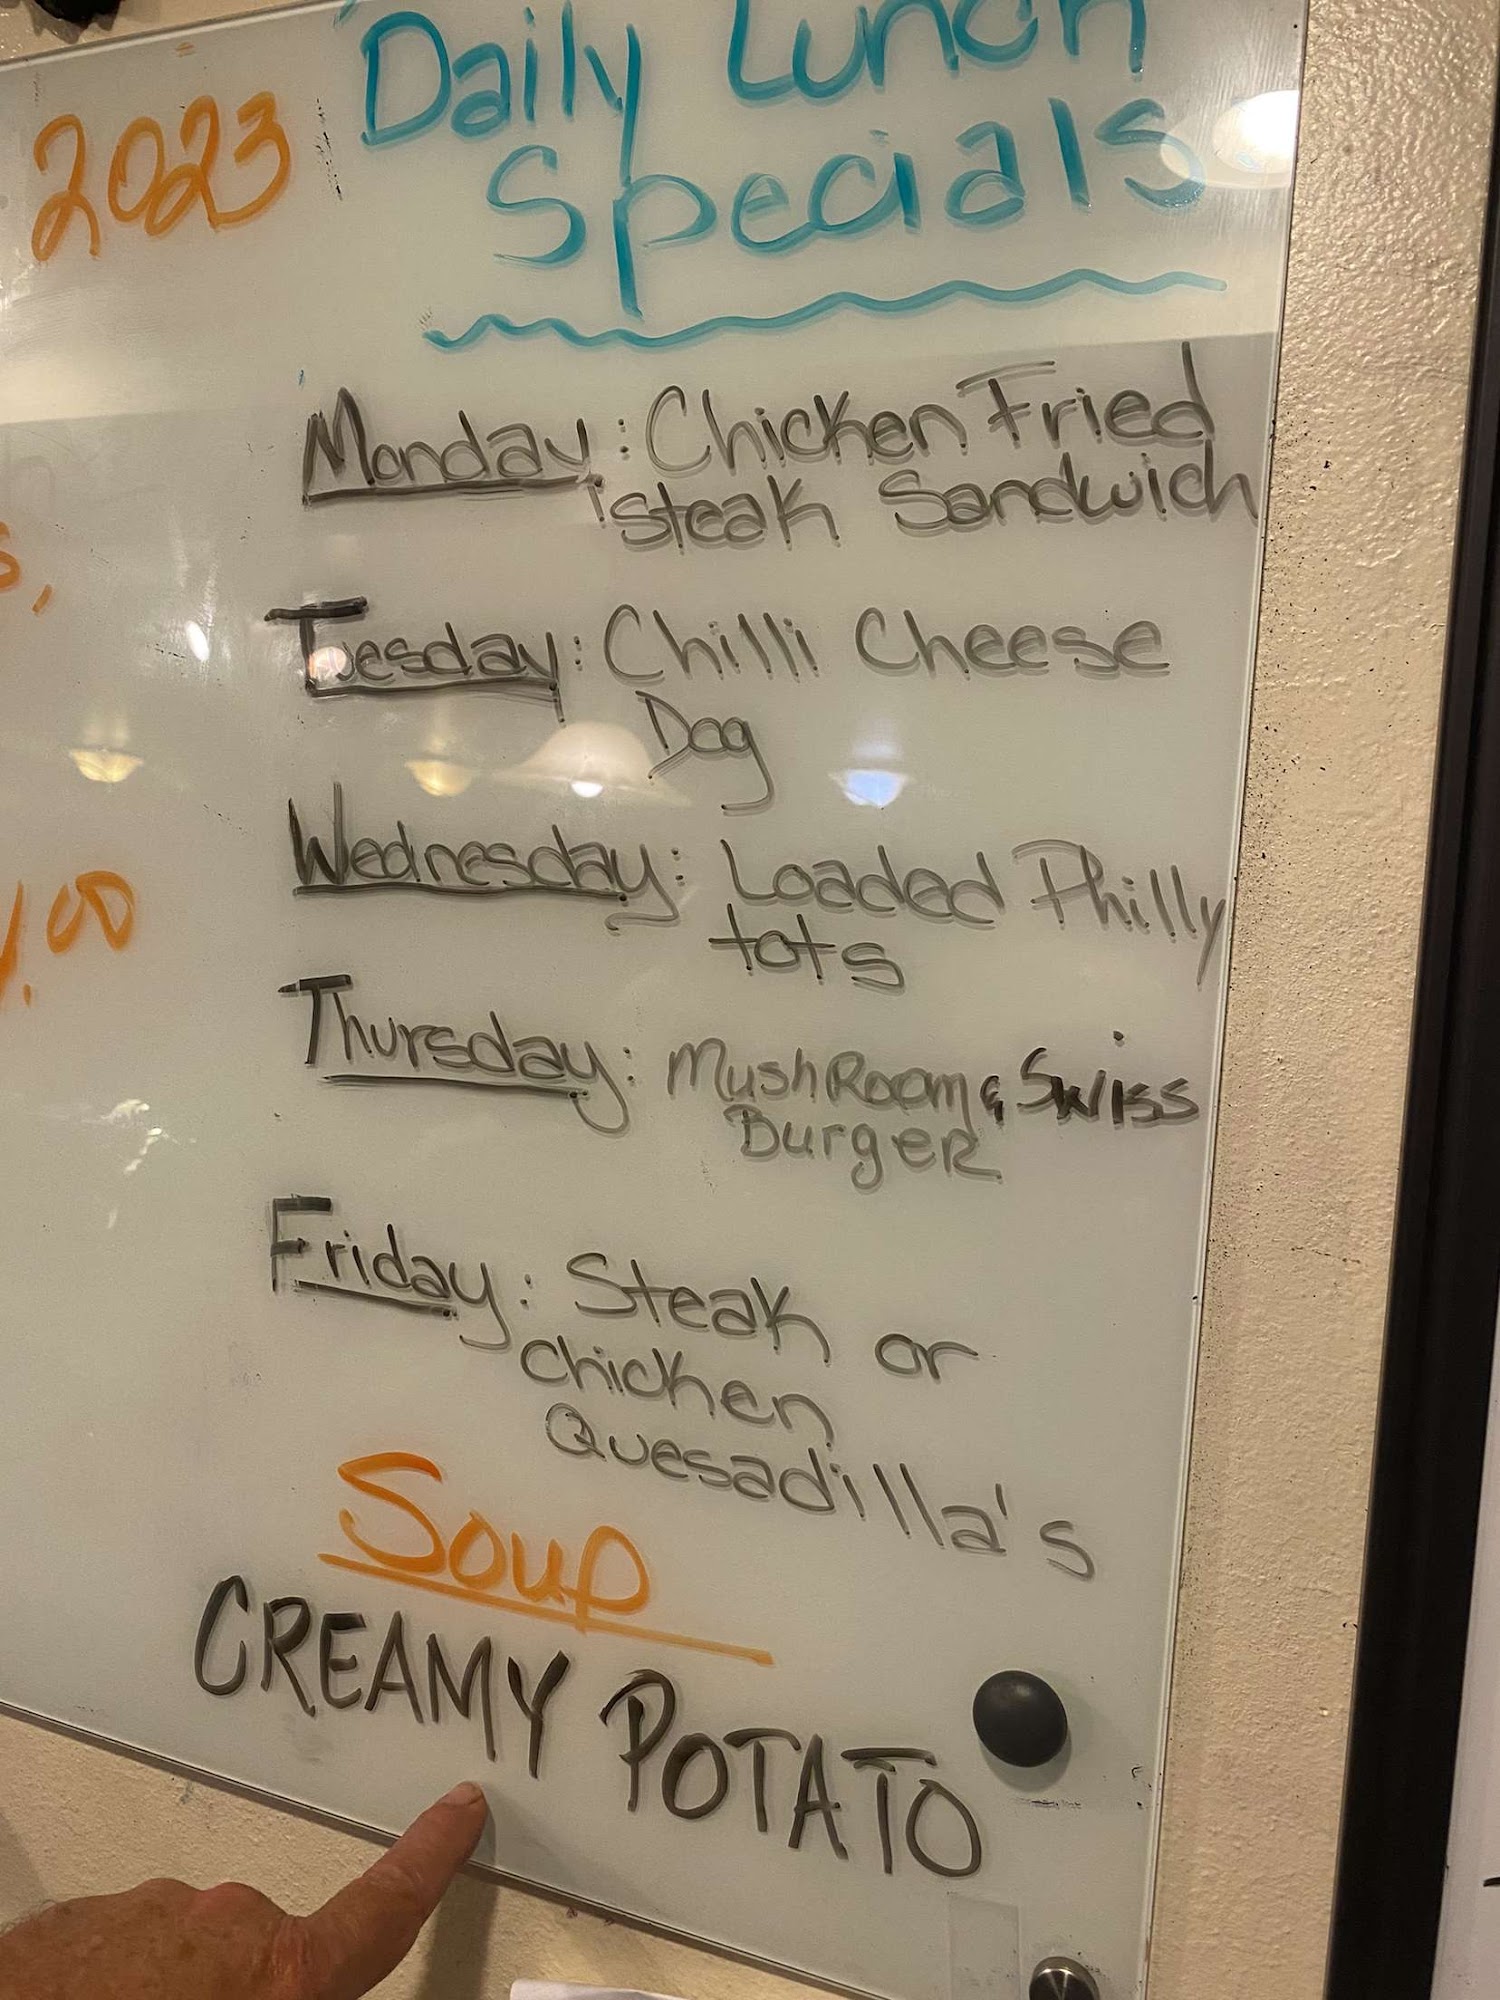 2023
Daily Lunch
Specials
Monday: Chicken Fried
Steak Sandwich
Tuesday: Chilli Cheese
Dog
Wednesday: Loaded Philly
tots
Thursday: MushRoom & Swiss
BurgeR
Friday: Steak or
Chicken
Quesadilla's
Soup
CREAMY POTATO